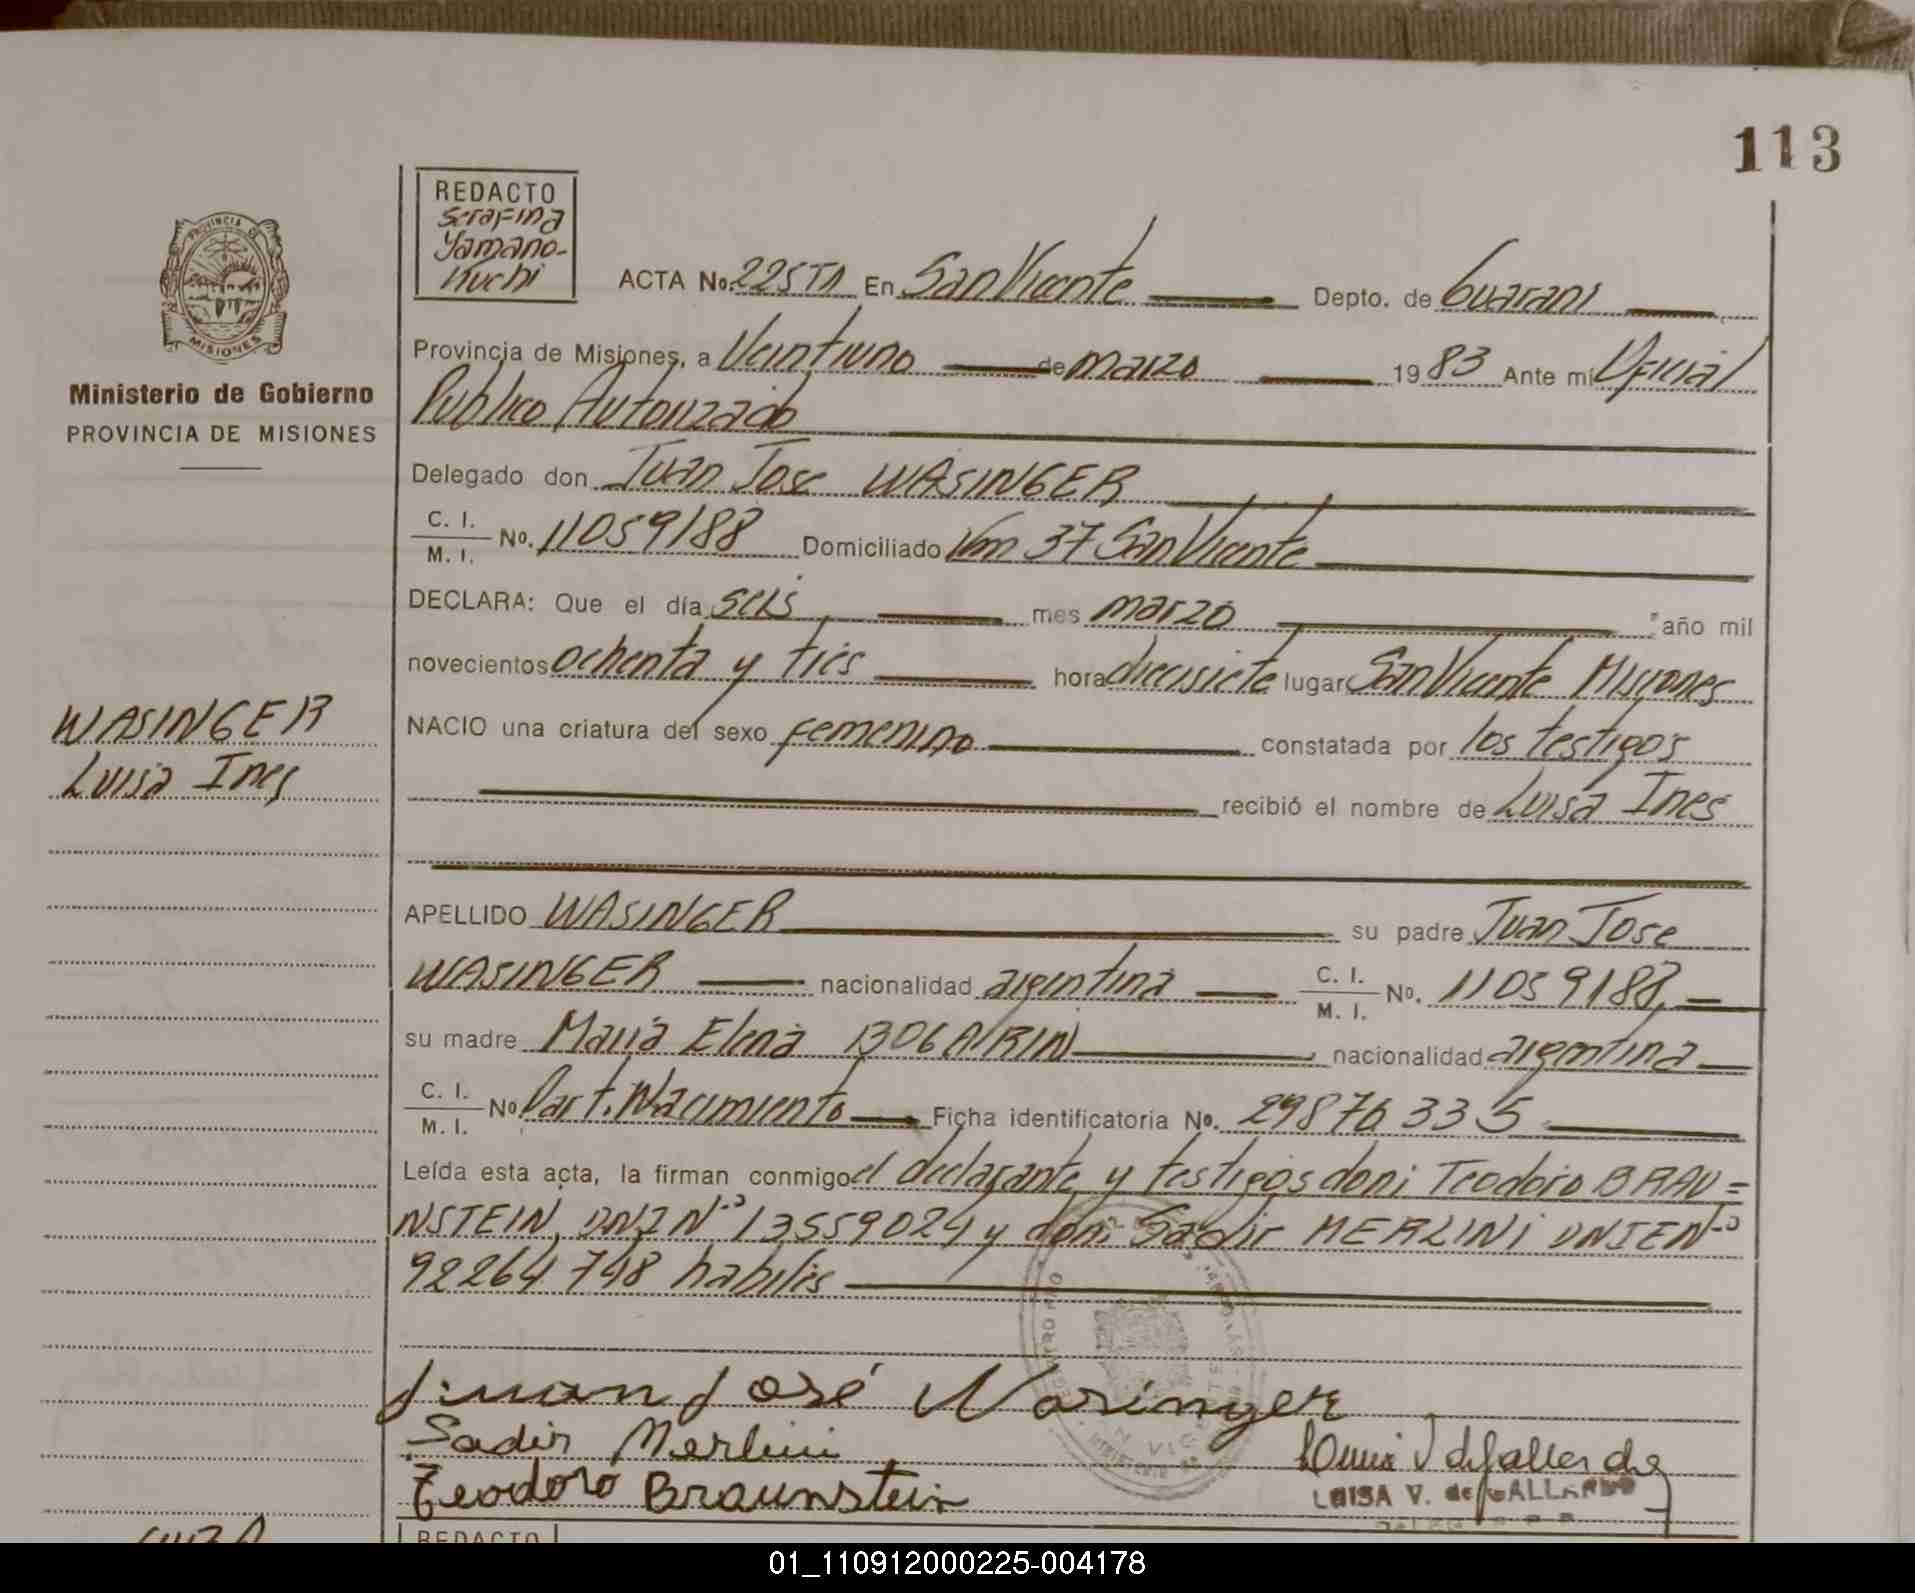 113
REDACTO
Serafina
Yamano-
Kuchi
PROVINCIA DE
MISIONES
Ministerio de Gobierno
PROVINCIA DE MISIONES
ACTA No. 225TA En San Vicente Depto. de Guarani
Provincia de Misiones, a Veintiuno de marzo 1983 Ante mi Oficial
Publico Autorizado
Delegado don Juan Jose WASINGER
C. I.
M. I. No. 11059188 Domiciliado Km 37 San Vicente
DECLARA: Que el día seis mes marzo año mil
novecientos ochenta y tres hora diecisiete lugar San Vicente Misiones
WASINGER
Luisa Ines
NACIO una criatura del sexo femenino constatada por los testigos
recibió el nombre de Luisa Ines
APELLIDO WASINGER su padre Juan Jose
WASINGER nacionalidad argentina C. I.
M. I. No. 11059188,
su madre Maria Elena BOGARIN nacionalidad argentina
C. I.
M. I. No Part. Nacimiento Ficha identificatoria No. 29876335
Leída esta acta, la firman conmigo el declarante y testigos don: Teodoro BRAU=
NSTEIN, DNI Nº 13559024 y don: Sadir MERLINI DNIEN º
92264.748 habiles
Juan José Wasinger
Sadir Merlini
Teodoro Braunstein
LUISA V. de GALLARDO
REDACTO
01_110912000225-004178